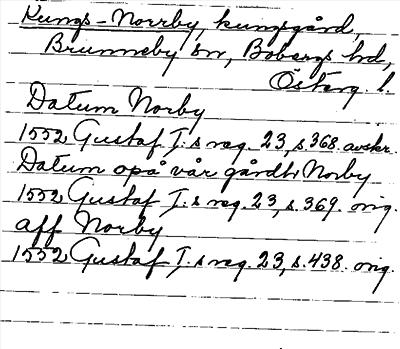 Kungs-Norrby, kungsgård,
Brunneby sn, Bobergs hd,
Österg. l.
Datum Norby
1552 Gustaf I:s reg. 23, s. 368. avskr.
Datum opå vår gårdt Norby
1552 Gustaf I:s reg. 23, s. 369. orig.
aff Norby
1552 Gustaf I:s reg. 23, s. 438. orig.